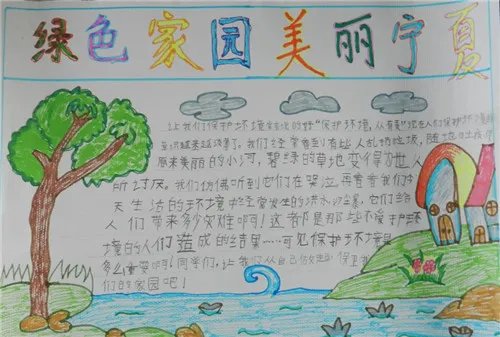 绿色家园美丽宁夏
让我们保护环境
"保护环境,从我
我们经常看到有些人乱扔垃圾,
原来美丽的小河,碧绿的草地变得为世人
所讨厌。我们仿佛听到它们在哭泣再看看我们今
天生活的环境中经常发生的洪水沙尘暴,它们给
人们带来多少灾难呵!这都是那些不爱护环
境的人们造成的结果……可见保护环境是
多么重要呵!同学们,让我们从自己做起 保卫
们的家园吧!